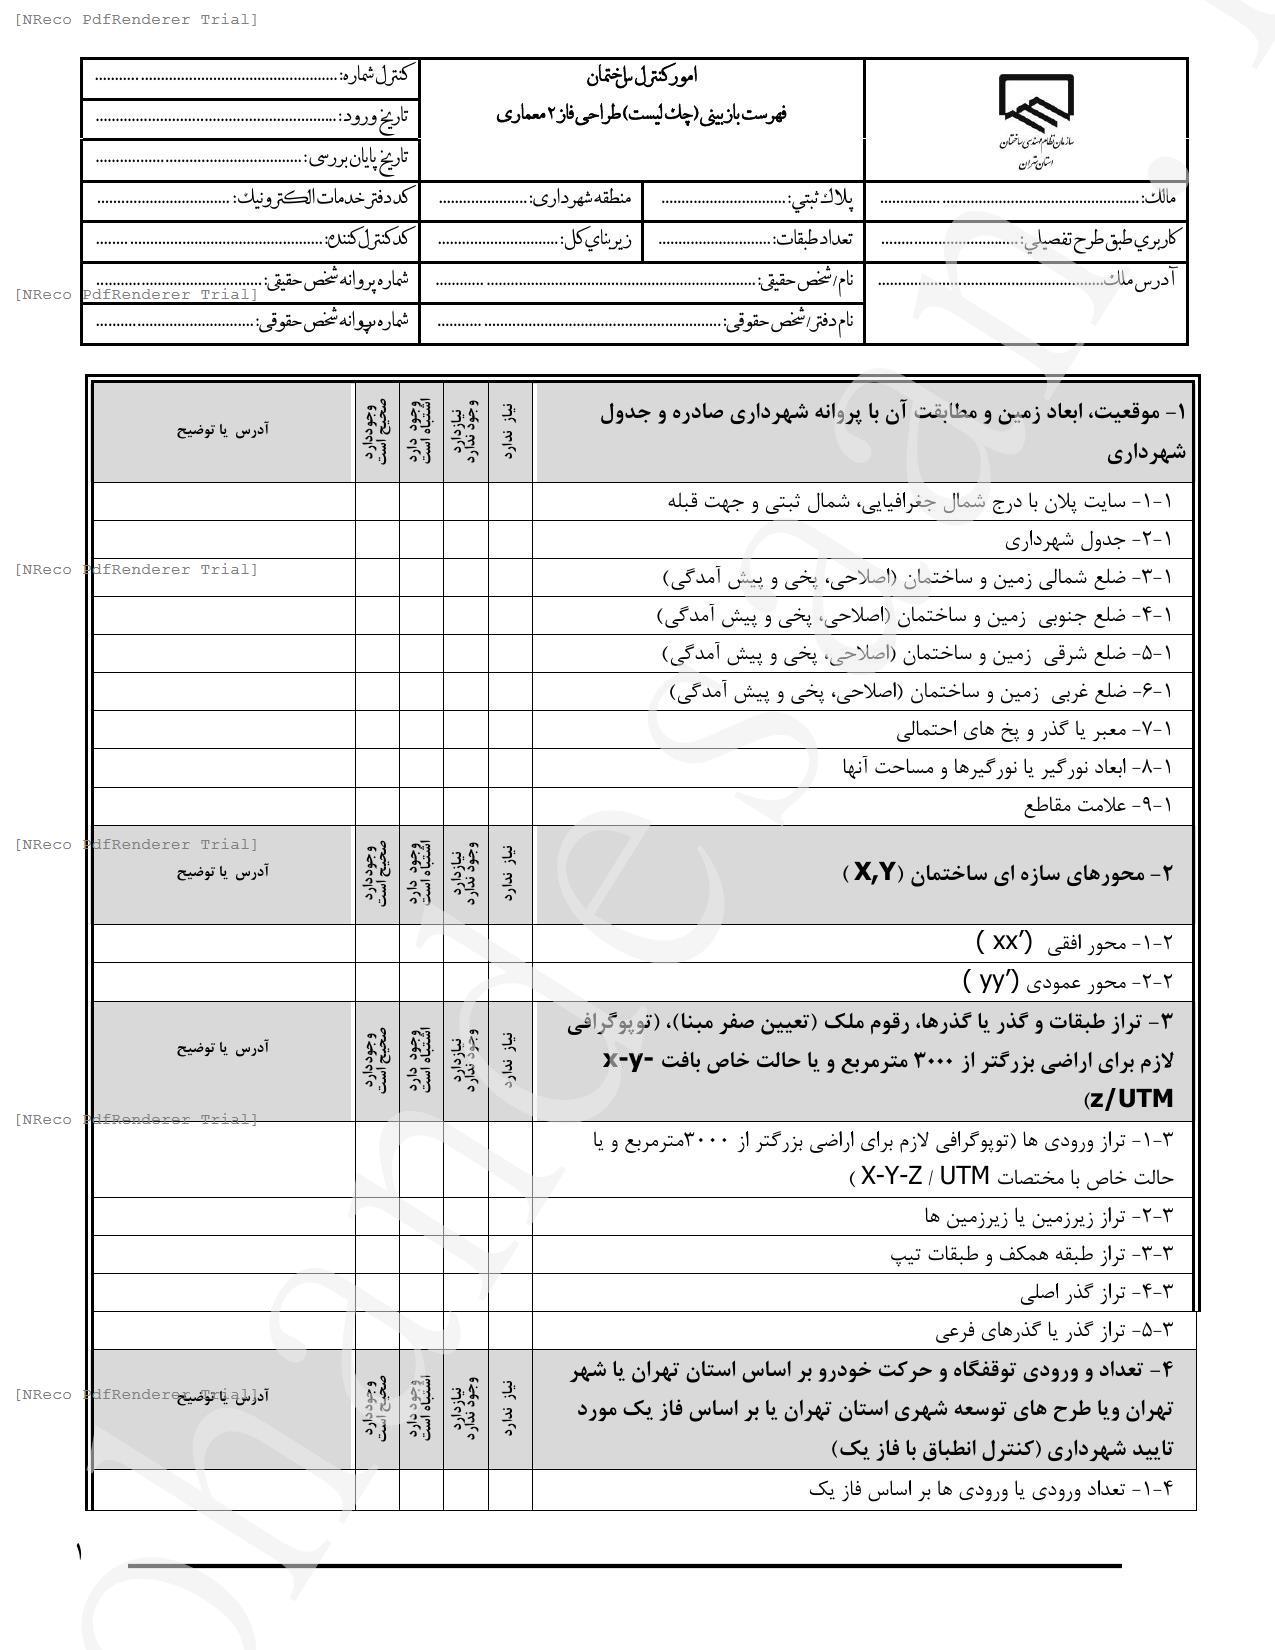 [NReco PdfRenderer Trial]
سازمان نظام مهندسی ساختمان
استان تهران
امور کنترل ساختمان
فهرست بازبینی (چک لیست) طراحی فاز ۲ معماری
کنترل شماره: ............................................................
تاریخ ورود: ............................................................
تاریخ پایان بررسی: ....................................................
مالك: ................................................................
پلاك ثبتي: ...............................
منطقه شهرداری: ......................
کد دفتر خدمات الکترونیک: .................................
كاربري طبق طرح تفصيلي: ..................................
تعداد طبقات: ............................
زیربنای کل: ..............................
کد کنترل کننده: ........................................................
آدرس ملك ........................................................
نام/شخص حقیقی: ................................................................................
شماره پروانه شخص حقیقی: .........................................
[NReco PdfRenderer Trial]
نام دفتر/شخص حقوقی: ......................................................................
شماره پروانه شخص حقوقی: .......................................
۱- موقعیت، ابعاد زمین و مطابقت آن با پروانه شهرداری صادره و جدول
شهرداری
نیاز ندارد
نیازدارد
وجود ندارد
وجود دارد
اشتباه است
وجوددارد
صحیح است
آدرس یا توضیح
۱-۱- سایت پلان با درج شمال جغرافیایی، شمال ثبتی و جهت قبله
۱-۲- جدول شهرداری
[NReco PdfRenderer Trial]
۱-۳- ضلع شمالی زمین و ساختمان (اصلاحی، پخی و پیش آمدگی)
۱-۴- ضلع جنوبی زمین و ساختمان (اصلاحی، پخی و پیش آمدگی)
۱-۵- ضلع شرقی زمین و ساختمان (اصلاحی، پخی و پیش آمدگی)
۱-۶- ضلع غربی زمین و ساختمان (اصلاحی، پخی و پیش آمدگی)
۱-۷- معبر یا گذر و پخ های احتمالی
۱-۸- ابعاد نورگیر یا نورگیرها و مساحت آنها
۱-۹- علامت مقاطع
[NReco PdfRenderer Trial]
۲- محورهای سازه ای ساختمان (X,Y )
نیاز ندارد
نیازدارد
وجود ندارد
وجود دارد
اشتباه است
وجوددارد
صحیح است
آدرس یا توضیح
۲-۱- محور افقی (xx′ )
۲-۲- محور عمودی (yy′ )
۳- تراز طبقات و گذر یا گذرها، رقوم ملک (تعیین صفر مبنا)، (توپوگرافی
لازم برای اراضی بزرگتر از ۳۰۰۰ مترمربع و یا حالت خاص بافت x-y-
z/UTM)
نیاز ندارد
نیازدارد
وجود ندارد
وجود دارد
اشتباه است
وجوددارد
صحیح است
آدرس یا توضیح
[NReco PdfRenderer Trial]
۳-۱- تراز ورودی ها (توپوگرافی لازم برای اراضی بزرگتر از ۳۰۰۰مترمربع و یا
حالت خاص با مختصات X-Y-Z / UTM )
۳-۲- تراز زیرزمین یا زیرزمین ها
۳-۳- تراز طبقه همکف و طبقات تیپ
۳-۴- تراز گذر اصلی
۳-۵- تراز گذر یا گذرهای فرعی
۴- تعداد و ورودی توقفگاه و حرکت خودرو بر اساس استان تهران یا شهر
تهران ویا طرح های توسعه شهری استان تهران یا بر اساس فاز یک مورد
تایید شهرداری (کنترل انطباق با فاز یک)
نیاز ندارد
نیازدارد
وجود ندارد
وجود دارد
اشتباه است
وجوددارد
صحیح است
آدرس یا توضیح
[NReco PdfRenderer Trial]
۴-۱- تعداد ورودی یا ورودی ها بر اساس فاز یک
۱